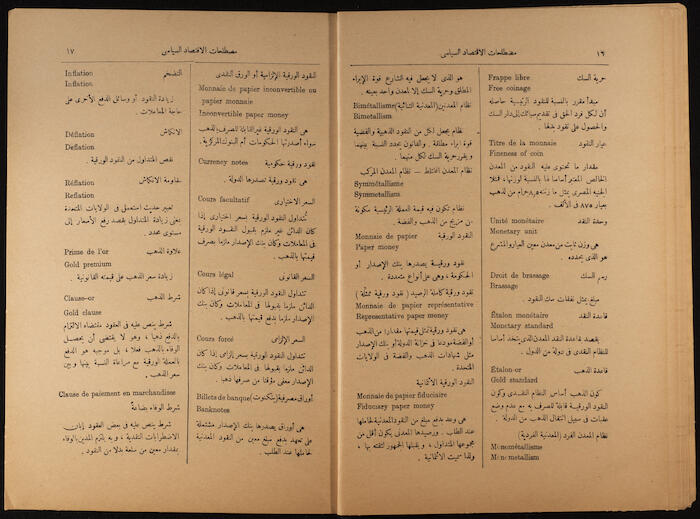 ١٦
مصطلحات الاقتصاد السياسى
حرية السك
Frappe libre
Free coinage
مبدأ مقرر بالنسبة للنقود الرئيسية حاصله
أن لكل فرد الحق فى تقديم سبائك إلى دار السك
والحصول على نقود بدلها .
عيار النقود
Titre de la monnaie
Fineness of coin
مقدار ما تحتوى عليه النقود من المعدن
الخالص المعتبر أساسا لها بالنسبة لوزنها، فمثلا
الجنيه المصرى يمثل ما زنته جرام من لدهب
بعيار ٨٧٥ فى الألف .
وحدة النقد
Unité monétaire
Monetary unit
هى وزن ثابت من معدن معين العيار والمشرع
هو الذى يحدده .
رسم السك
Droit de brassage
Brassage
مبلغ يمثل نفقات سك النقود .
قاعدة النقد
Étalon monétaire
Monetary standard
يقصد بقاعدة النقد المعدن الذى يتخذ أساسا
للنظام النقدى فى دولة من الدول .
قاعدة الذهب
Étalon-or
Gold standard
كون الذهب أساس النظام النقدى وكون
النقود الورقية قابلة للصرف به مع عدم وضع
عقبات فى سبيل انتقال الذهب من الدولة .
نظام المعدن الفرد (المعدنية الفردية)
Monométallisme
Monometallism
هو الذى لا يجعل فيه الشارع قوة الإبراء
المطلق وحرية السك إلا لمعدن واحد بعينه .
نظام المعدنين (المعدنية الثنائية)
Bimétallisme
Bimetallism
نظام يجعل لكل من النقود الذهبية والفضية
قوة إبراء مطلقة . والقانون يحدد النسبة بينهما
ويقرر حرية السك لكل منهما .
نظام المعدن المختلط — نظام المعدن المركب
Symmétallisme
Symmetallism
نظام تكون فيه قيمة العملة الرئيسية مكونة
من مزيج من الذهب والفضة .
النقود الورقية
Monnaie de papier
Paper money
نقود ورقيسة يصدرها بنك الإصدار أو
الحكومة ، وهى على أنواع متعددة .
نقود ورقية كاملة الرصيد ( نقود ورقية ممثلة )
Monnaie de papier représentative
Representative paper money
هى نقود ورقية تمثل قيمتها مقدارا من الذهب
أو الفضة مودعا فى خزانة الدولة أو بنك الإصدار
مثل شهادات الذهب والفضة فى الولايات
المتحدة .
النقود الورقية الائتمانية
Monnaie de papier fiduciaire
Fiduciary paper money
هى وعد بدفع مبلغ من النقود المعدنية لحاملها
عند الطلب . ورصيدها المعدنى يكون أقل من
مجموعها المتداول ، ويقبلها الجمهور لثقته بها ،
ولذا سميت الائتمانية .
مصطلحات الاقتصاد السياسى
١٧
النقود الورقية الإلزامية أو الورق النقدى
Monnaie de papier inconvertible ou
papier monnaie
Inconvertible paper money
هى النقود الورقية غير القابلة للصرف بالذهب
سواء أصدرتها الحكومات أم البنوك المركزية .
نقود ورقية حكومية
Currency notes
هى نقود ورقية تصدرها الدولة .
السعر الاختيارى
Cours facultatif
تُتداول النقود الورقية بسعر اختيارى إذا
كان الدائن غير ملزم بقبول النقود الورقية
فى المعاملات وكان بنك الإصدار ملزما بصرف
قيمتها بالذهب .
السعر القانونى
Cours légal
تتداول النقود الورقية بسعر قانونى إذا كان
الدائن ملزما بقبولها فى المعاملات وكان بنك
الإصدار ملزما بدفع قيمتها بالذهب .
السعر الإلزامى
Cours forcé
تتداول النقود الورقية بسعر إلزامى إذا كان
الدائن ملزما بقبولها فى المعاملات وكان بنك
الإصدار معفى مؤقتا من صرفها ذهبا .
أوراق مصرفية (بنكنوت)
Billets de banque
Banknotes
هى أوراق يصدرها بنك الإصدار مشتملة
على تعهد بدفع مبلغ معين من النقود المعدنية
لحاملها عند الطلب .
التضخم
Inflation
Inflation
زيادة النقود أو وسائل الدفع الأخرى على
حاجة المعاملات .
الانكماش
Déflation
Deflation
نقص المتداول من النقود الورقية .
مقاومة الانكماش
Réflation
Reflation
تعبير حديث استعمل فى الولايات المتحدة
بمعنى زيادة المتداول بقصد رفع الأسعار إلى
مستوى محدد .
علاوة الذهب
Prime de l'or
Gold premium
زيادة سعر الذهب على قيمته القانونية .
شرط الذهب
Clause-or
Gold clause
شرط ينص عليه فى العقود مقتضاه الالتزام
بالدفع ذهبا ، وهو لا يقتضى أن يحصل
الوفاء بالذهب فعلا ، بل موجبه هو الدفع
بالعملة الورقية مع مراعاة النسبة بينها وبين
سعر الذهب .
Clause de paiement en marchandises
شرط الوفاء بضاعةً
شرط ينص عليه فى بعض العقود إبان
الاضطرابات النقدية ، وبه يلتزم المدين بالوفاء
بمقدار معين من سلعة بدلا من النقود .